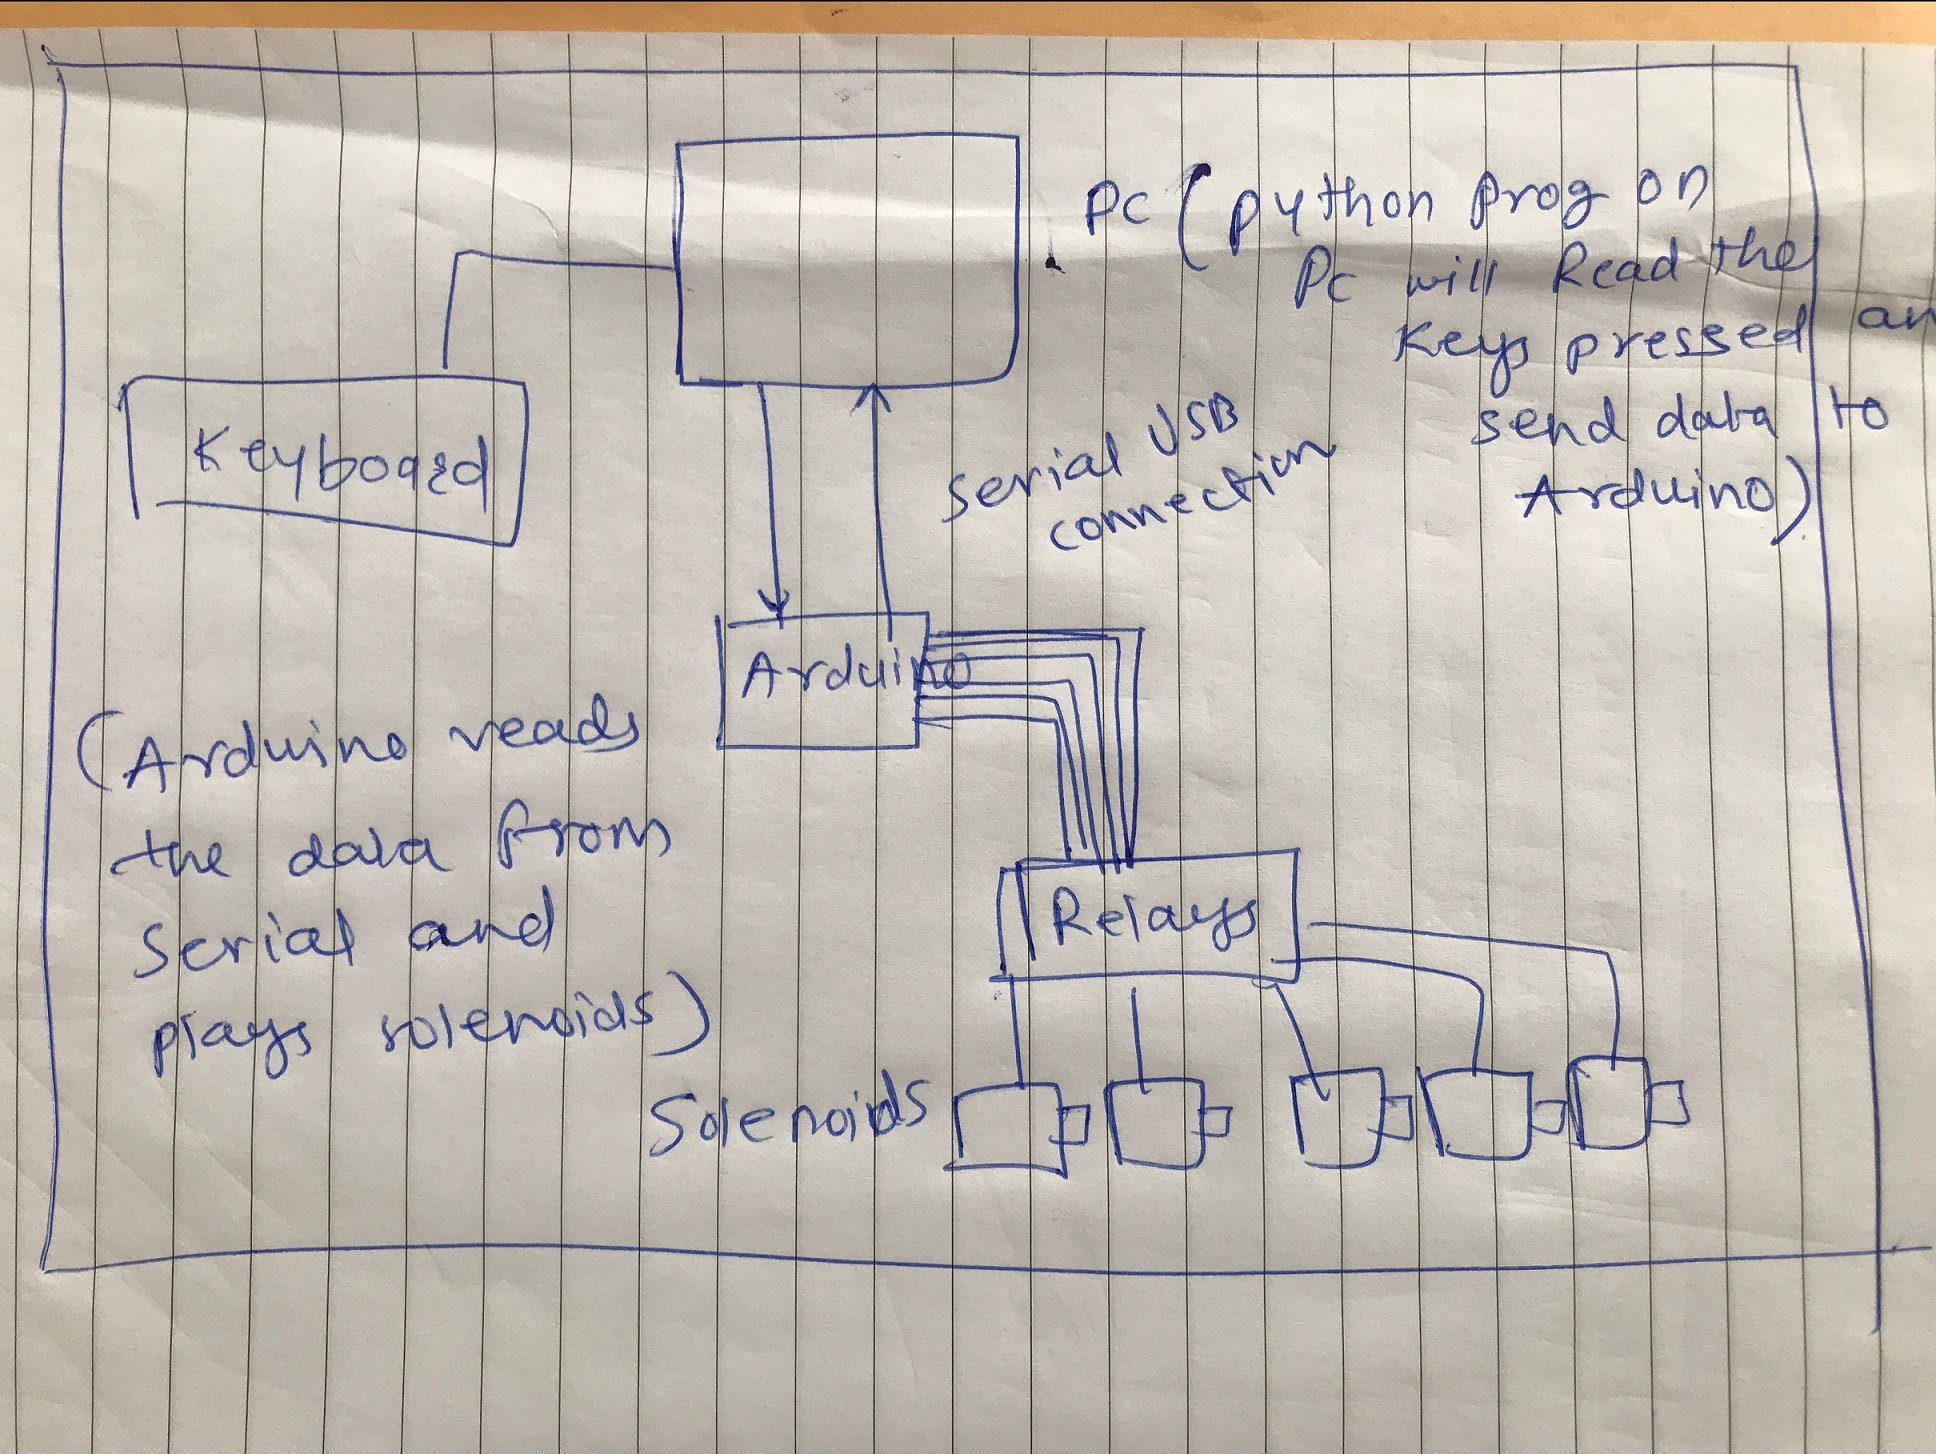 PC (python prog on
PC will Read the
Keys pressed an
send data to
Arduino)
Keyboard
serial USB
connection
Arduino
(Arduino reads
the data from
serial and
plays solenoids)
Relays
Solenoids